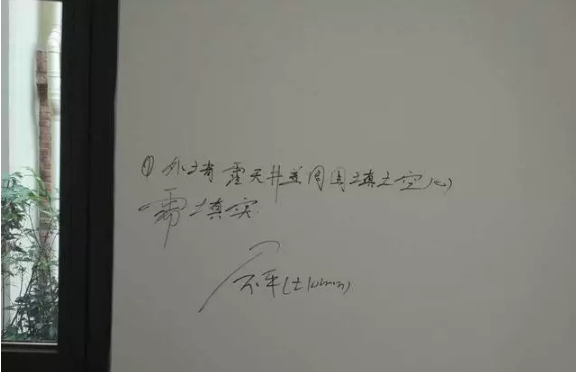 ①外墙露天井盖周围填土空心
需填实
不平(±10mm)